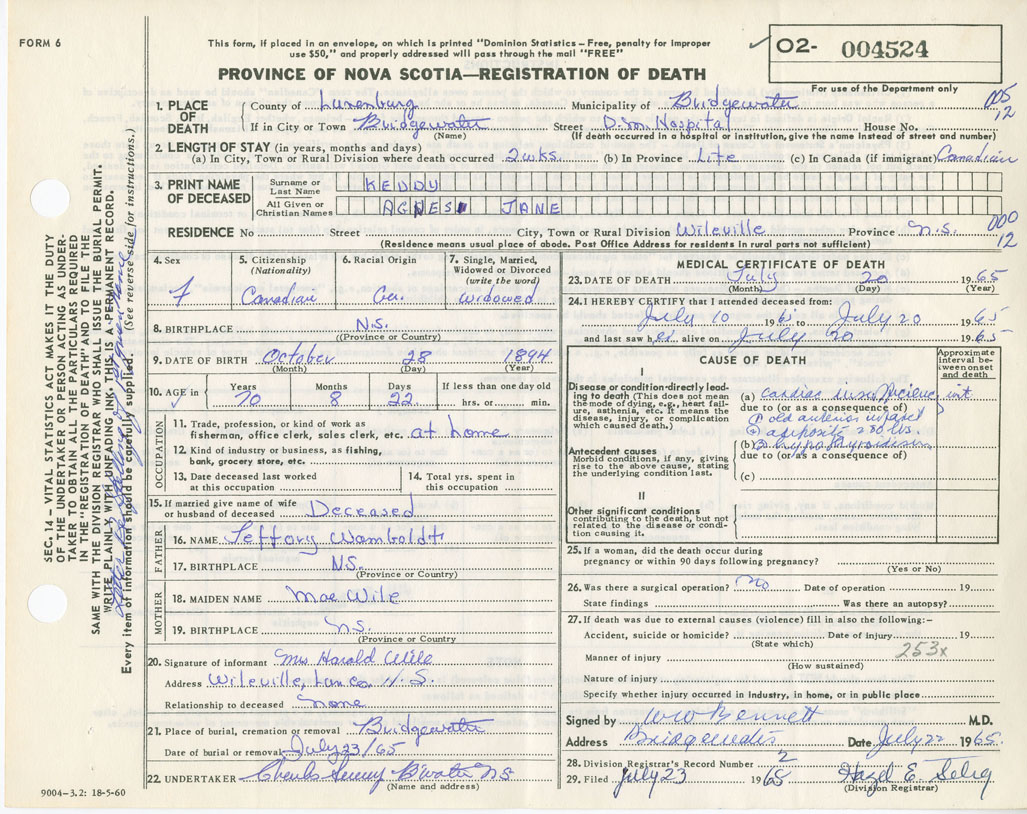 FORM 6
This form, if placed in an envelope, on which is printed "Dominion Statistics – Free, penalty for improper
use $50," and properly addressed will pass through the mail "FREE"
O2- 004524
PROVINCE OF NOVA SCOTIA—REGISTRATION OF DEATH
For use of the Department only
1. PLACE OF DEATH
County of Lunenburg Municipality of Bridgewater 005
If in City or Town Bridgewater Street Hospital House No. 12
(Name) (If death occurred in a hospital or institution, give the name instead of street and number)
2. LENGTH OF STAY (in years, months and days)
(a) In City, Town or Rural Division where death occurred 2 wks. (b) In Province Life (c) In Canada (if immigrant) Canadian
3. PRINT NAME OF DECEASED
Surname or Last Name KEDDY
All Given or Christian Names AGNES JANE
RESIDENCE No. Street City, Town or Rural Division Wileville Province N.S. 000
(Residence means usual place of abode. Post Office Address for residents in rural parts not sufficient) 12
4. Sex F
5. Citizenship (Nationality) Canadian
6. Racial Origin
7. Single, Married, Widowed or Divorced (write the word) Widowed
8. BIRTHPLACE N.S.
(Province or Country)
9. DATE OF BIRTH October 28 1894
(Month) (Day) (Year)
10. AGE in Years 70 Months 8 Days 22 If less than one day old hrs. or min.
OCCUPATION
11. Trade, profession, or kind of work as
fisherman, office clerk, sales clerk, etc. at home
12. Kind of industry or business, as fishing,
bank, grocery store, etc.
13. Date deceased last worked at this occupation
14. Total yrs. spent in this occupation
15. If married give name of wife
or husband of deceased Deceased
FATHER
16. NAME Jeffory Wamboldt
17. BIRTHPLACE NS.
(Province or Country)
MOTHER
18. MAIDEN NAME Mae Wile
19. BIRTHPLACE N.S.
(Province or Country
20. Signature of informant Mrs Harald Wile
Address Wileville, Lun. Co. N.S.
Relationship to deceased none
21. Place of burial, cremation or removal Bridgewater
Date of burial or removal July 23/65
22. UNDERTAKER B'water N.S
(Name and address)
9004–3.2: 18-5-60
MEDICAL CERTIFICATE OF DEATH
23. DATE OF DEATH July 20 1965
(Month) (Day) (Year)
24. I HEREBY CERTIFY that I attended deceased from:
July 10 1965 to July 20 1965
and last saw her alive on July 20 1965
CAUSE OF DEATH
Approximate interval between onset and death
I
Disease or condition directly leading to death (This does not mean the mode of dying, e.g., heart failure, asthenia, etc. It means the disease, injury, or complication which caused death.)
(a) cardiac insufficiency
due to (or as a consequence of)
① old anterior infarct
② 280 lbs.
(b) ③ hypothyroidism
due to (or as a consequence of)
Antecedent causes
Morbid conditions, if any, giving rise to the above cause, stating the underlying condition last.
(c)
II
Other significant conditions
contributing to the death, but not related to the disease or condition causing it.
25. If a woman, did the death occur during
pregnancy or within 90 days following pregnancy?
(Yes or No)
26. Was there a surgical operation? no Date of operation 19
State findings Was there an autopsy?
27. If death was due to external causes (violence) fill in also the following:-
Accident, suicide or homicide? Date of injury 19
(State which)
Manner of injury 253x
(How sustained)
Nature of injury
Specify whether injury occurred in industry, in home, or in public place
Signed by WW Bennett M.D.
Address Bridgewater Date July 22 1965
28. Division Registrar's Record Number 2
29. Filed July 23 1965 Hazel E. Selig
(Division Registrar)
SEC. 14 – VITAL STATISTICS ACT MAKES IT THE DUTY
OF THE UNDERTAKER OR PERSON ACTING AS UNDER-
TAKER TO OBTAIN ALL THE PARTICULARS REQUIRED
IN THE "REGISTRATION OF DEATH" AND TO FILE THE
SAME WITH THE DIVISION REGISTRAR WHO SHALL ISSUE THE BURIAL PERMIT.
WRITE PLAINLY, WITH UNFADING INK. THIS IS A PERMANENT RECORD.
Every item of information should be carefully supplied. (See reverse side for instructions.)